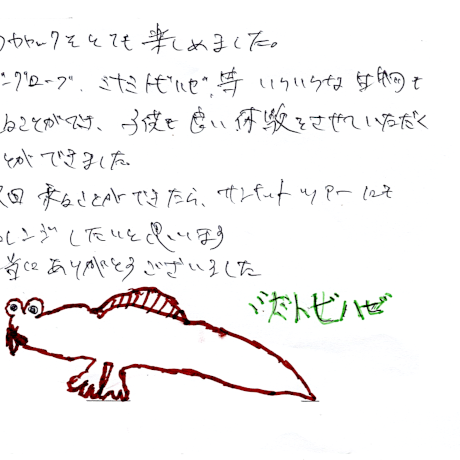 カヤックをとても楽しめました。
ングローブ、ミナミトビハゼ、等 いろいろな生物を
ることができ、子供も良い体験をさせていただく
とができました。
次回 来ることができたら、サンセットツアーにも
ャレンジしたいと思います
当にありがとうございました
ミナミトビハゼ